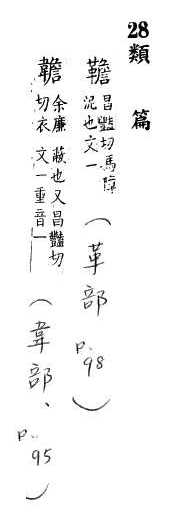 28 類篇
韂
昌豔切馬障
泥也文一
(革部 P.98)
余廉
切衣
蔽也又昌豔切
文一重音一
(韋部、P.95)